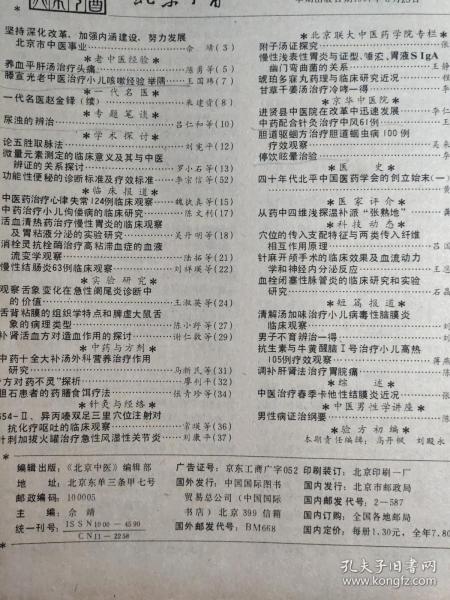 坚持深化改革，加强内涵建设，努力发展
北京市中医事业 余 靖(3)
*老中医经验*
养血平肝汤治疗头痛 陈勇等(5)
滕宣光老中医治疗小儿咳嗽经验举隅 王国玮(7)
*一代名医*
一代名医赵金铎(续) 朱建贵(8)
*专题笔谈*
尿浊的辨治 吕仁和等(10)
*学术探讨*
论五胜取脉法 刘宽平(12)
微量元素测定的临床意义及其与中医
辨证的关系探讨 罗小石等(13)
功能性便秘的诊断标准及疗效标准 李宗信等(52)
*临床报道*
中医药治疗心律失常124例临床观察 魏执真等(15)
中药治疗小儿佝偻病的临床研究 陈文利(17)
活血清热药治疗慢性胃炎的临床观察
及胃粘液分泌的实验研究 吴丹明等(18)
消栓灵抗栓酶治疗高粘滞血症的血液
流变学观察 陆拓等(21)
慢性结肠炎63例临床观察 刘祥瑛等(22)
*实验研究*
观察舌象变化在急性阑尾炎诊断中
的价值 王淑英等(24)
舌背粘膜的组织学特点和脾虚大鼠舌
象的病理类型 陈小野等(27)
补肾活血方对造血作用的探讨 谢仁敷等(29)
*中药与方剂*
中药十全大补汤外科营养治疗作用
研究 马新民等(31)
方对药不灵"探析 廖利平(32)
胆石患者的药膳食饵疗法 张青珍等(34)
*针灸与经络*
654-Ⅱ、异丙嗪双足三里穴位注射对
抗化疗呕吐的临床观察 常瑛等(36)
针刺加拔火罐治疗急性风湿性关节炎 刘康平(37)
*北京联大中医药学院专栏*
附子汤证探究
慢性浅表性胃炎与证型、唾液、胃液SIgA
幽门弯曲菌的关系
琥珀多寐丸药理与临床研究近况
甘草干姜汤治疗冷哮一得
*京华中医院*
进贤县中医院在改革中迅速发展
中药配合针灸治疗中风61例
胆道驱蛔方治疗胆道蛔虫病100例
疗效观察
停饮眩晕治验
*医史*
四十年代北平中国医药学会的创立始末(一)
*医家评介*
从药中四维浅探温补派"张熟地"
*科技动态*
穴位的传入支配特征与两类传入纤维
相互作用原理
针麻开颅手术的临床效果及血流动力
学和神经内分泌反应
血栓闭塞性脉管炎的临床研究和实验
研究
*短篇报道*
清解汤加味治疗小儿病毒性脑膜炎
临床观察
男子不育辨治一得
抗生素与牛黄醒脑Ⅰ号治疗小儿高热
105例疗效观察
调补肝肾法治疗胃脘痛
*综述*
中医治疗春季卡他性结膜炎近况
*中医男性学讲座*
男性病证治纲要
*验方初编*
本期责任编辑：高丹枫 刘殿永
编辑出版：《北京中医》编辑部
地 址：北京东单三条甲七号
邮政编码：100005
主 编：佘 靖
统一刊号：ISSN1000-4590
CN11-2258
广告证号：京东工商广字052
国外发行：中国国际图书
贸易总公司(中国国际
书店)北京399信箱
国外邮发代号：BM668
印刷装订：北京印刷一厂
国内发行：北京市邮政局
国内邮发代号：2-587
国内订购：全国各地邮局
国内定价：每册1.30元，全年7.80
孔夫子旧书网